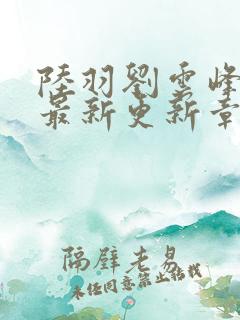 陸羽劉雲峰
最新更新章
隔壁老易
未经同意禁止转载